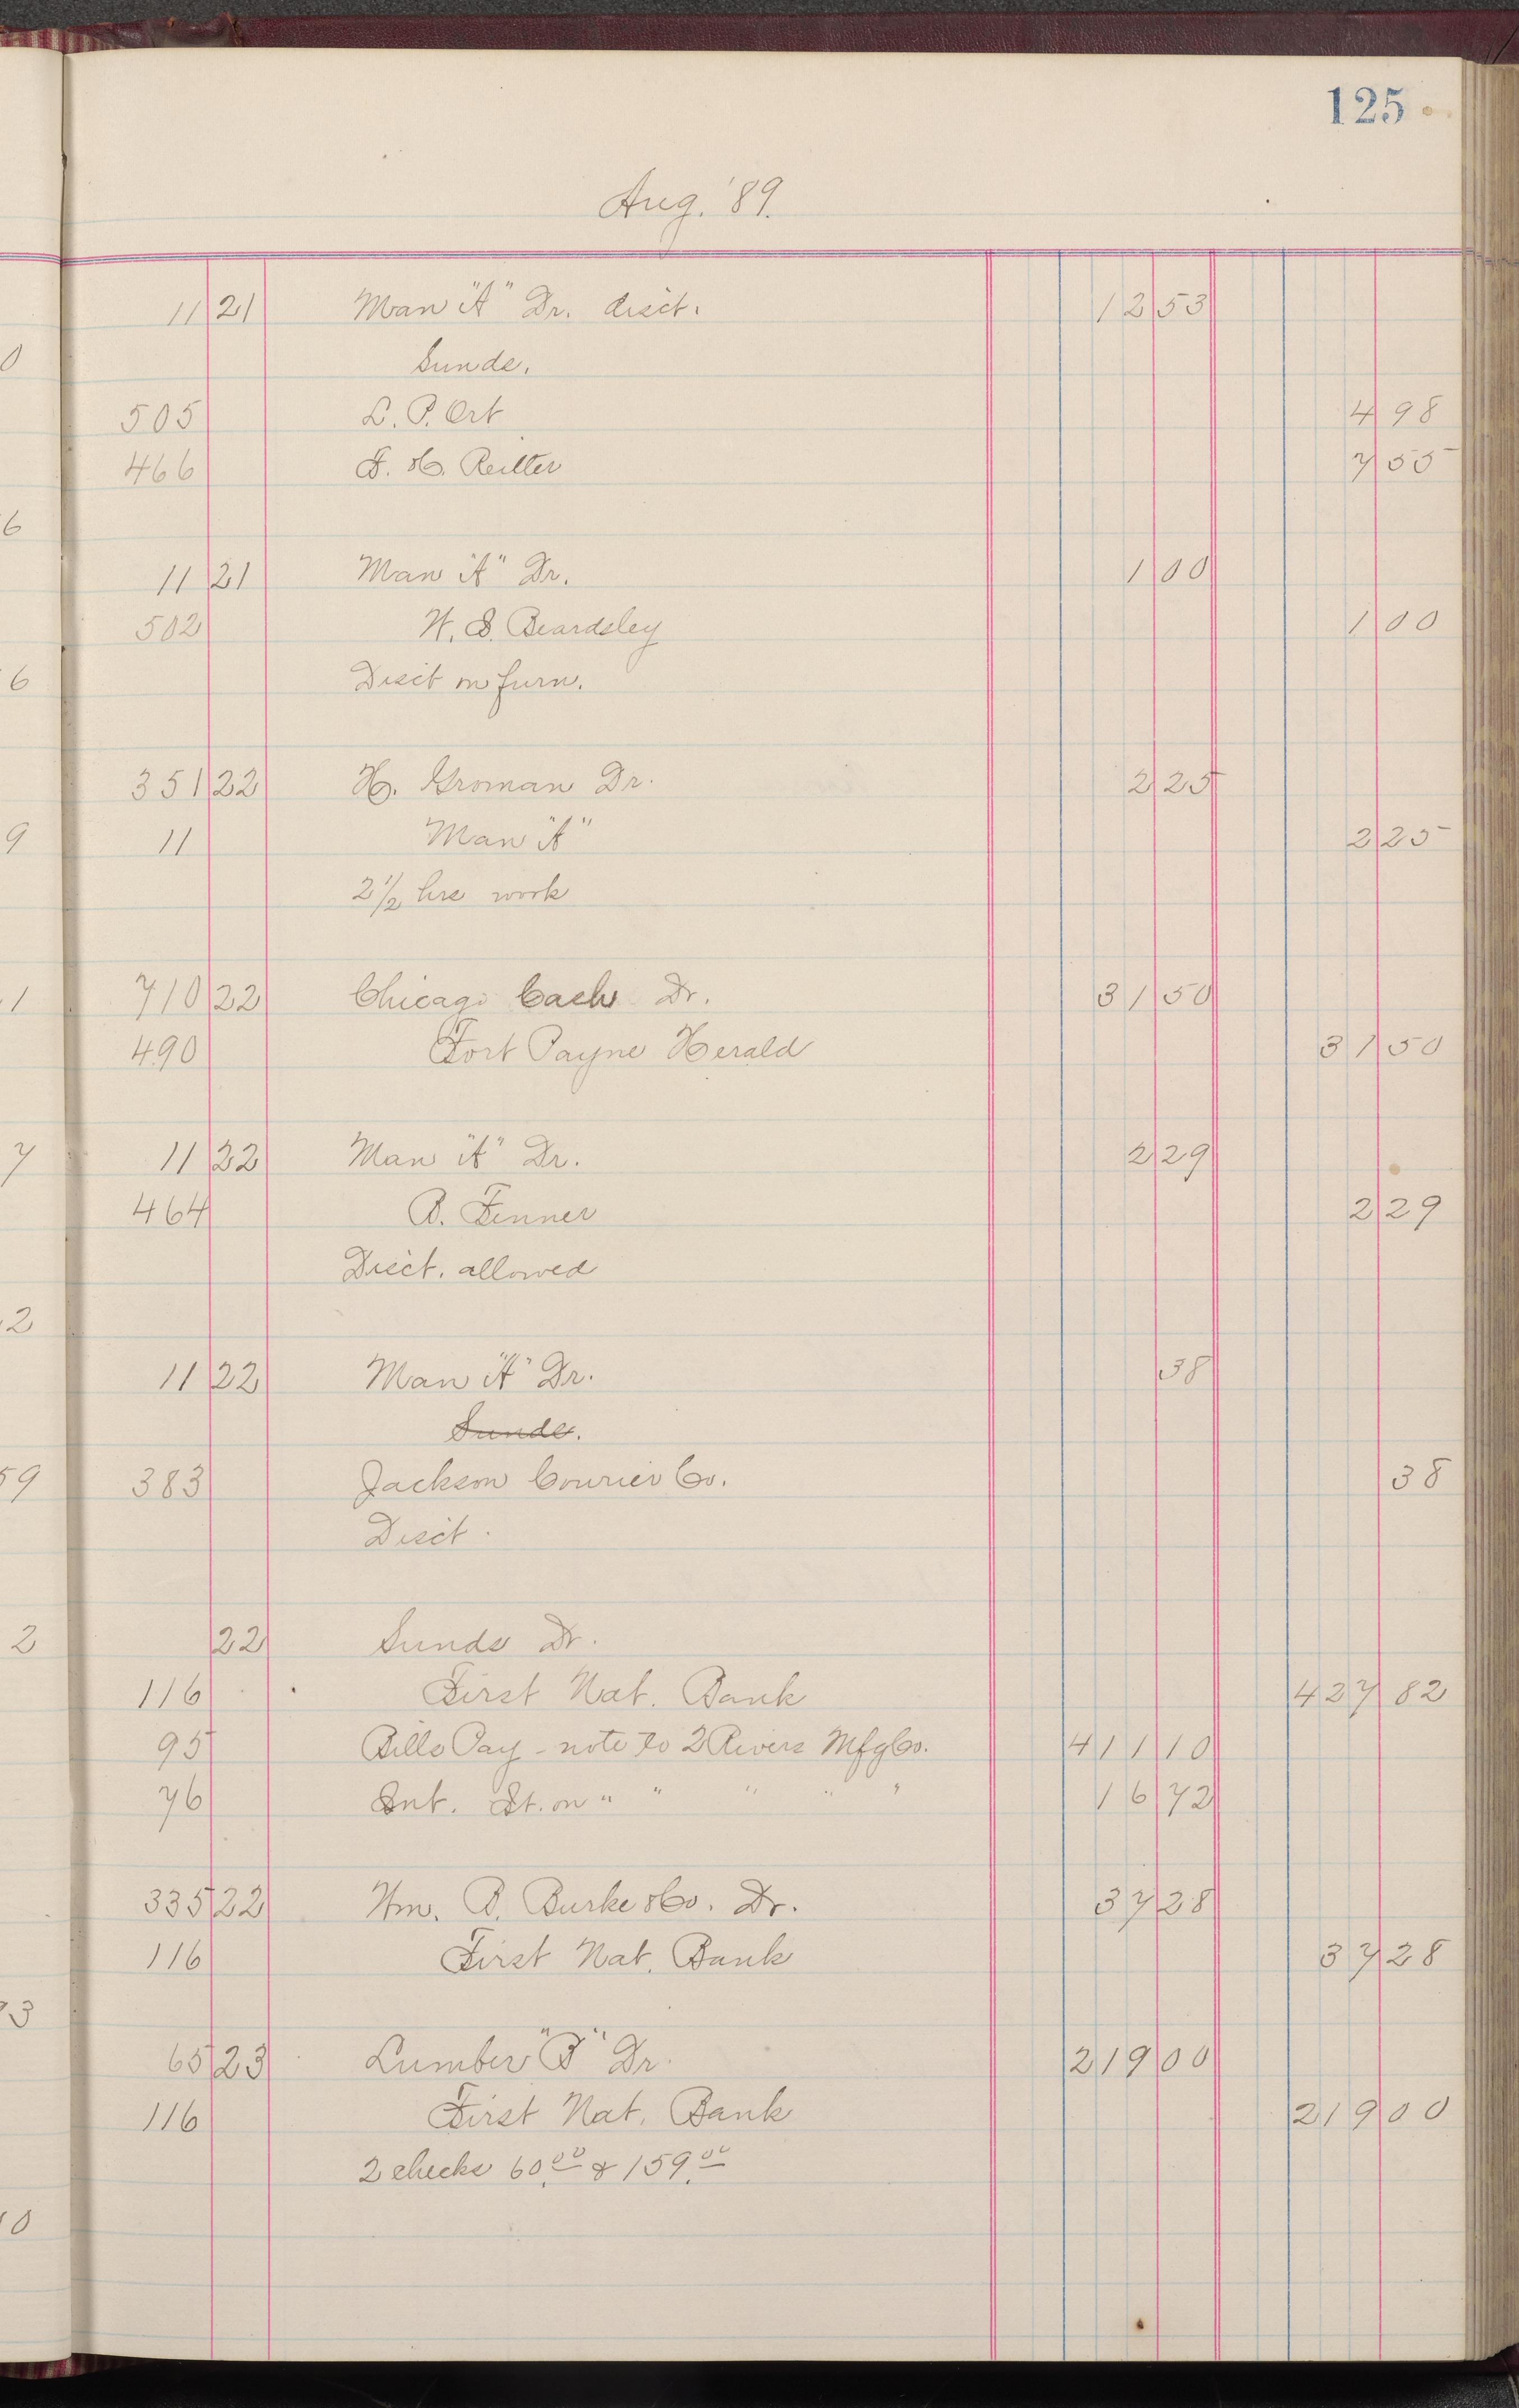 125
Aug. '89.
11 21 Man "A" Dr. disct. 12 53
Sunds.
505 L. P. Ort 4 98
466 F. H. Reitter 7 55
11 21 Man "A" Dr. 1 00
502 W. S. Beardsley 1 00
Disct on furn.
351 22 H. Groman Dr. 2 25
11 Man "A" 2 25
2 1/2 hrs work
710 22 Chicago Cash Dr. 31 50
490 Fort Payne Herald 31 50
11 22 Man "A" Dr. 2 29
464 B. Fenner 2 29
Disct. allowed
11 22 Man "A" Dr. 38
Sunds.
383 Jackson Courier Co. 38
Disct.
22 Sunds Dr.
116 First Nat. Bank 427 82
95 Bills Pay - note to 2 Rivers Mfg Co. 411 10
76 Int. It. on " " " " " 16 72
335 22 Wm. B. Burke & Co. Dr. 37 28
116 First Nat. Bank 37 28
65 23 Lumber "B" Dr. 219 00
116 First Nat. Bank 219 00
2 checks 60.00 & 159.00